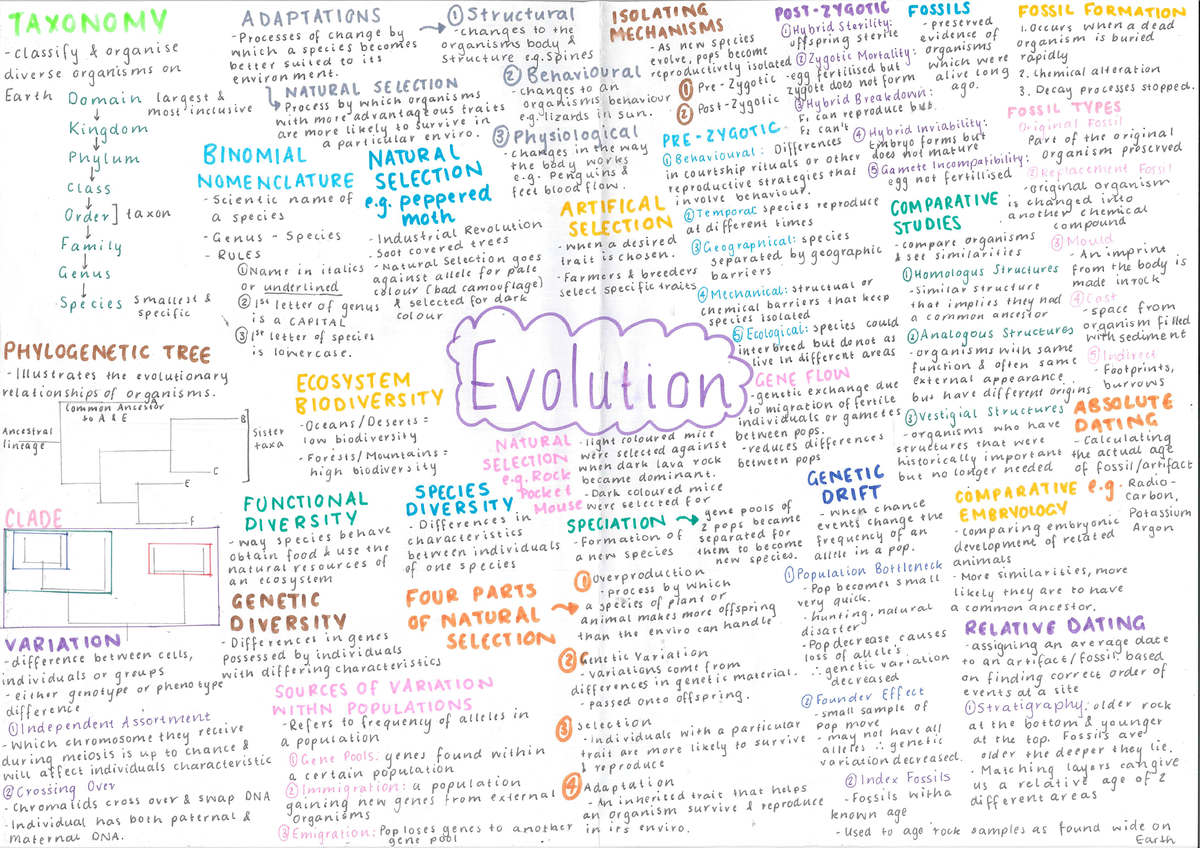 TAXONOMY
- classify & organise
diverse organisms on
Earth
Domain largest &
most inclusive
Kingdom
Phylum
Class
Order ] taxon
Family
Genus
Species smallest &
specific
PHYLOGENETIC TREE
- Illustrates the evolutionary
relationships of organisms.
Common Ancestor
to A & E
Ancestral
lineage
B
C
E
F
Sister
taxa
CLADE
VARIATION
- difference between cells,
individuals or groups
- either genotype or phenotype
difference
① Independent Assortment
- Which chromosome they receive
during meiosis is up to chance &
will affect individuals characteristic
② Crossing Over
- Chromatids cross over & swap DNA
- Individual has both paternal &
maternal DNA.
ADAPTATIONS
- Processes of change by
which a species becomes
better suited to its
environment.
NATURAL SELECTION
- Process by which organisms
with more advantageous traits
are more likely to survive in
a particular enviro.
① Structural
- changes to the
organisms body &
structure e.g. Spines
② Behavioural
- changes to an
organisms behaviour
e.g. lizards in sun.
③ Physiological
- changes in the way
the body works
e.g. Penguins &
feet blood flow.
BINOMIAL
NOMENCLATURE
- Scientic name of
a species
- Genus - Species
- RULES
① Name in italics
or underlined
② 1st letter of genus
is a CAPITAL
③ 1st letter of species
is lowercase.
NATURAL
SELECTION
e.g. peppered
moth
- Industrial Revolution
- Soot covered trees
- Natural Selection goes
against allele for pale
colour (bad camouflage)
& selected for dark
colour
ECOSYSTEM
BIODIVERSITY
- Oceans/Deserts =
low biodiversity
- Forests/Mountains =
high biodiversity
FUNCTIONAL
DIVERSITY
- way species behave
obtain food & use the
natural resources of
an ecosystem
SPECIES
DIVERSITY
- Differences in
characteristics
between individuals
of one species
GENETIC
DIVERSITY
- Differences in genes
possessed by individuals
with differing characteristics
SOURCES OF VARIATION
WITHN POPULATIONS
- Refers to frequency of alleles in
a population
① Gene Pools: genes found within
a certain population
② Immigration: a population
gaining new genes from external
organisms
③ Emigration: Pop loses genes to another
gene pool
Evolution
NATURAL
SELECTION
e.g. Rock
Pocket
Mouse
- light coloured mice
were selected against
when dark lava rock
became dominant.
- Dark coloured mice
were selected for
SPECIATION
- Formation of
a new species
gene pools of
2 pops became
separated for
them to become
new species.
FOUR PARTS
OF NATURAL
SELECTION
① Overproduction
- process by which
a species of plant or
animal makes more offspring
than the enviro can handle
② Genetic Variation
- Variations come from
differences in genetic material.
- passed onto offspring.
③ Selection
- Individuals with a particular
trait are more likely to survive
& reproduce
④ Adaptation
- An inherited trait that helps
an organism survive & reproduce
in its enviro.
ISOLATING
MECHANISMS
- As new species
evolve, pops become
reproductively isolated
① Pre-Zygotic
② Post-Zygotic
PRE-ZYGOTIC
① Behavioural: Differences
in courtship rituals or other
reproductive strategies that
involve behaviour.
② Temporal: species reproduce
at different times
③ Geographical: species
separated by geographic
barriers
④ Mechanical: structual or
chemical barriers that keep
species isolated
⑤ Ecological: species could
interbreed but do not as
live in different areas
ARTIFICAL
SELECTION
- When a desired
trait is chosen.
- Farmers & breeders
select specific traits
POST-ZYGOTIC
① Hybrid Sterility:
offspring sterile
② Zygotic Mortality:
egg fertilised but
zygote does not form
③ Hybrid Breakdown:
F₁ can reproduce but
F₂ can't
④ Hybrid Inviability:
Embryo forms but
does not mature
⑤ Gamete Incompatibility:
egg not fertilised
GENE FLOW
- genetic exchange due
to migration of fertile
individuals or gametes
between pops.
- reduces differences
between pops
GENETIC
DRIFT
- When chance
events change the
frequency of an
allele in a pop.
① Population Bottleneck
- Pop becomes small
very quick.
- hunting, natural
disaster
- Pop decrease causes
loss of allele's
∴ genetic variation
decreased
② Founder Effect
- small sample of
Pop move
- may not have all
alleles ∴ genetic
variation decreased.
FOSSILS
- preserved
evidence of
organisms
which were
alive long
ago.
FOSSIL FORMATION
1. Occurs when a dead
organism is buried
rapidly
2. Chemical alteration
3. Decay processes stopped.
FOSSIL TYPES
① Original Fossil
Part of the original
organism preserved
② Replacement Fossil
- original organism
is changed into
another chemical
compound
③ Mould
- An imprint
from the body is
made in rock
④ Cast
- space from
organism filled
with sediment
⑤ Indirect
- Footprints,
burrows
COMPARATIVE
STUDIES
- compare organisms
& see similarities
① Homologus Structures
- Similar structure
that implies they had
a common ancestor
② Analogous Structures
- organisms with same
function & often same
external appearance
but have different origins
③ Vestigial Structures
- organisms who have
structures that were
historically important
but no longer needed
ABSOLUTE
DATING
- Calculating
the actual age
of fossil/artifact
e.g. Radio-
Carbon,
Potassium
Argon
COMPARATIVE
EMBRYOLOGY
- Comparing embryonic
development of related
animals
- More similarities, more
likely they are to have
a common ancestor.
RELATIVE DATING
- assigning an average date
to an artifact/fossil based
on finding correct order of
events at a site
① Stratigraphy: older rock
at the bottom & younger
at the top. Fossils are
older the deeper they lie.
- Matching layers can give
us a relative age of 2
different areas
② Index Fossils
- Fossils with a
known age
- Used to age rock samples as found wide on
Earth